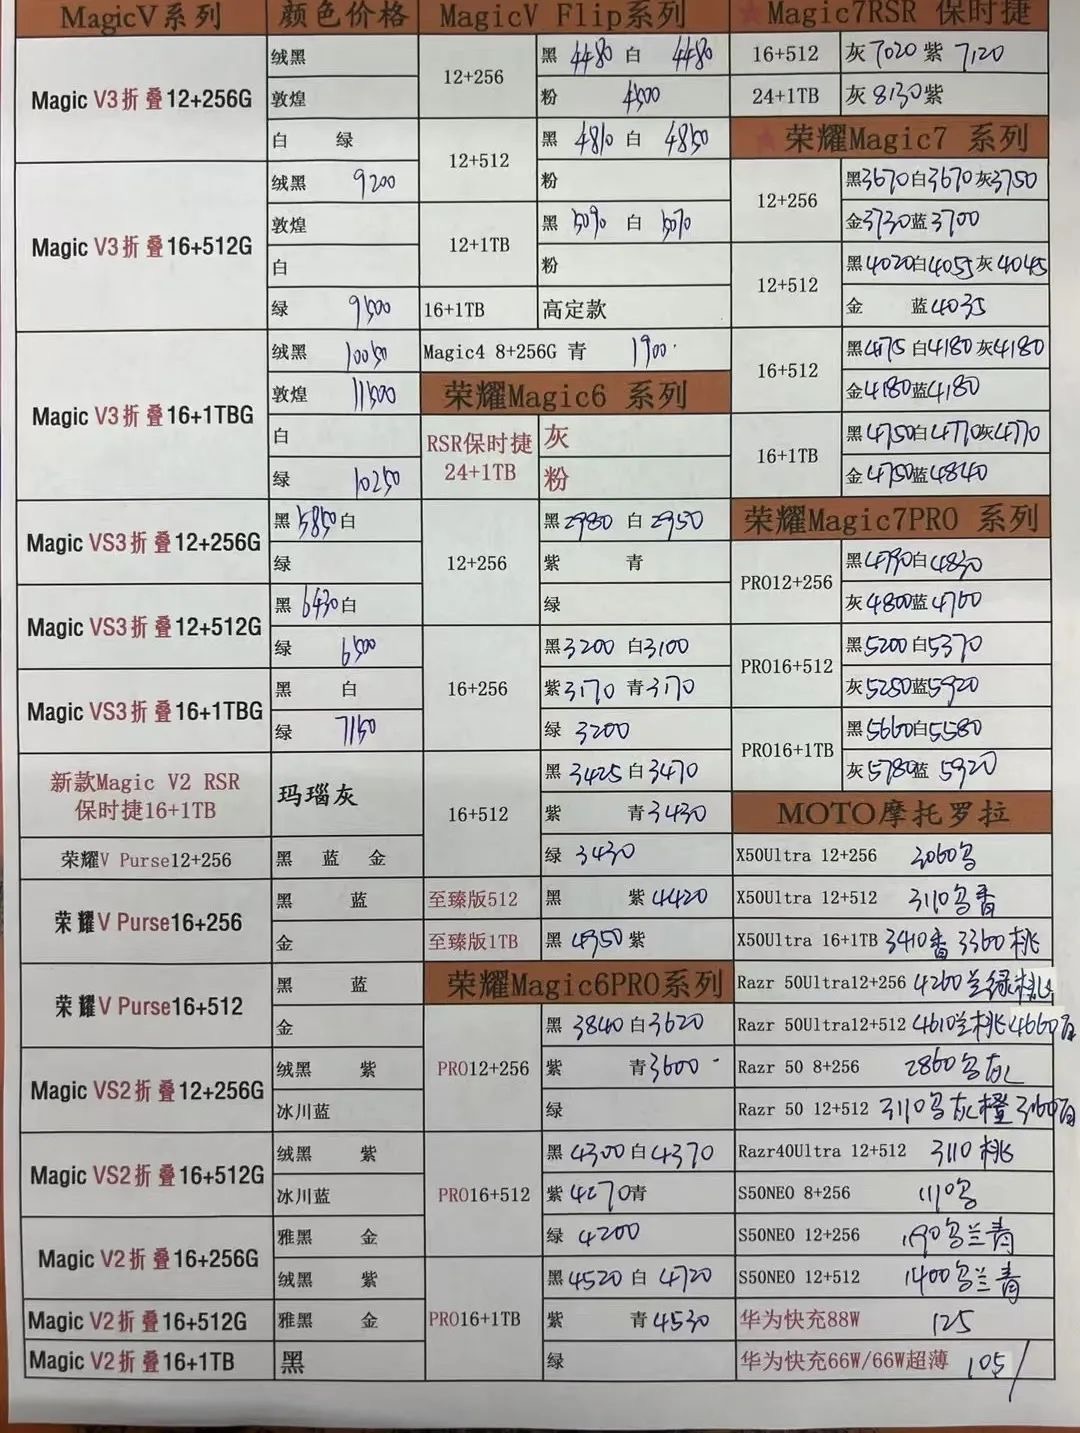 MagicV系列 颜色价格
Magic V3折叠12+256G
绒黑
敦煌
白 绿
Magic V3折叠16+512G
绒黑 9200
敦煌
白
绿 9500
Magic V3折叠16+1TBG
绒黑 10050
敦煌 11500
白
绿 10250
Magic VS3折叠12+256G
黑 5850 白
绿
Magic VS3折叠12+512G
黑 6430 白
绿 6500
Magic VS3折叠16+1TBG
黑 白
绿 7150
新款Magic V2 RSR
保时捷16+1TB
玛瑙灰
荣耀V Purse12+256 黑 蓝 金
荣耀V Purse16+256
黑 蓝
金
荣耀V Purse16+512
黑 蓝
金
Magic VS2折叠12+256G
绒黑 紫
冰川蓝
Magic VS2折叠16+512G
绒黑 紫
冰川蓝
Magic V2折叠16+256G
雅黑 金
绒黑 紫
Magic V2折叠16+512G 雅黑 金
Magic V2折叠16+1TB 黑
MagicV Flip系列
12+256
黑 4480 白 4480
粉 4500
12+512
黑 4810 白 4850
粉
12+1TB
黑 5090 白 5070
粉
16+1TB 高定款
Magic4 8+256G 青 1900
荣耀Magic6 系列
RSR保时捷
24+1TB
灰
粉
12+256
黑2980 白2950
紫 青
绿
16+256
黑3200 白3100
紫3170 青3170
绿 3200
16+512
黑 3425 白3470
紫 青3430
绿 3430
至臻版512 黑 紫4420
至臻版1TB 黑 4950 紫
荣耀Magic6PRO系列
PRO12+256
黑 3840 白3620
紫 青3600
绿
PRO16+512
黑 4300 白4370
紫4270青
绿 4200
PRO16+1TB
黑4520 白 4720
紫 青4530
绿
★Magic7RSR 保时捷
16+512 灰7020 紫 7120
24+1TB 灰 8130紫
★荣耀Magic7 系列
12+256
黑3670白3670灰3750
金3730蓝3700
12+512
黑4020白4055灰4045
金 蓝4035
16+512
黑4175 白4180灰4180
金4180蓝4180
16+1TB
黑4750白4770灰4770
金4750蓝4840
荣耀Magic7PRO 系列
PRO12+256
黑4790白4830
灰4800蓝4760
PRO16+512
黑5200白5370
灰5250蓝5920
PRO16+1TB
黑5660白5580
灰5780蓝 5920
MOTO摩托罗拉
X50Ultra 12+256 3060乌
X50Ultra 12+512 3110乌香
X50Ultra 16+1TB 3410香 3360桃
Razr 50Ultra12+256 4260兰绿桃
Razr 50Ultra12+512 4610兰桃4660百
Razr 50 8+256 2860乌灰
Razr 50 12+512 3110乌灰橙3160百
Razr40Ultra 12+512 3110桃
S50NEO 8+256 1110乌
S50NEO 12+256 1190乌兰青
S50NEO 12+512 1400乌兰青
华为快充88W 125
华为快充66W/66W超薄 105